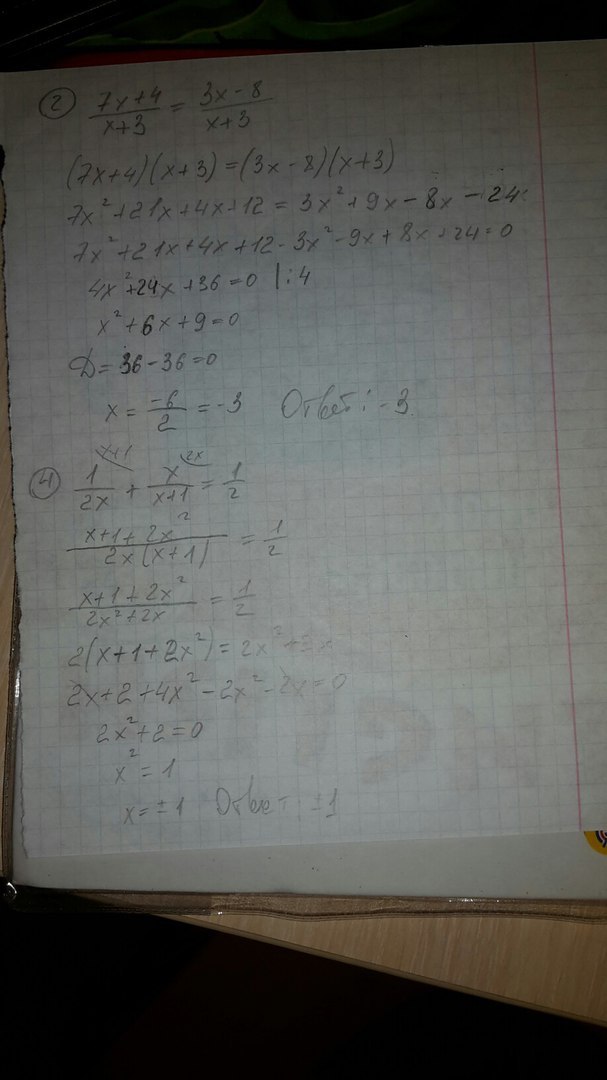 2 (7x+4)/(x+3) = (3x-8)/(x+3)
(7x+4)(x+3)=(3x-8)(x+3)
7x²+21x+4x+12=3x²+9x-8x-24
7x²+21x+4x+12-3x²-9x+8x+24=0
4x²+24x+36=0 |:4
x²+6x+9=0
D=36-36=0
x=-6/2=-3 Ответ: -3
4 1/2x + x/(x+1) = 1/2 x+1 2x
(x+1+2x²)/(2x(x+1)) = 1/2
(x+1+2x²)/(2x²+2x) = 1/2
2(x+1+2x²)=2x²+2x
2x+2+4x²-2x²-2x=0
2x²+2=0
x²=1
x=±1 Ответ: ±1